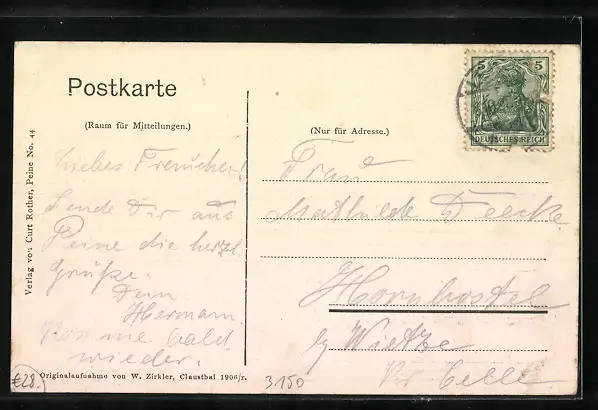 Postkarte
(Raum für Mitteilungen.)
Liebes Frauchen!
Sende Dir aus
Peine die herzl.
Grüße.
Dein
Hermann.
Komme bald
wieder.
Originalaufnahme von W. Zirkler, Clausthal 1906/7.
Verlag von Curt Rother, Peine No. 44
(Nur für Adresse.)
Frau
Mathilde Deecke
Hornbostel
by Wietze
Kr. Celle
5 5
DEUTSCHES REICH
€28.
3150